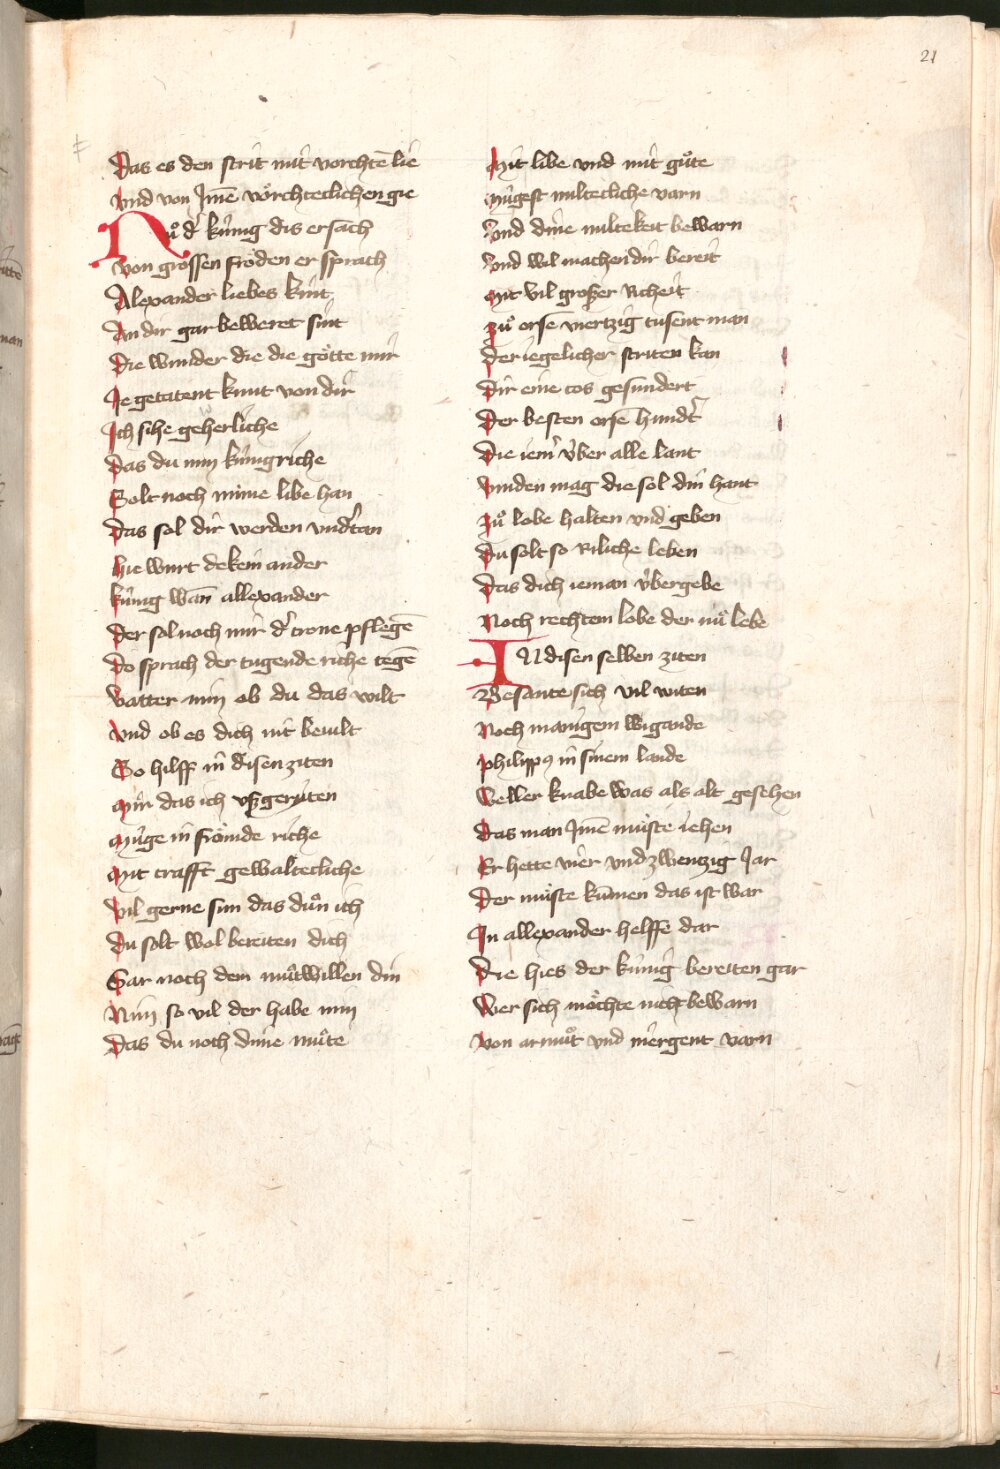 21
Das es den strit mit vorchtē lie
Vnd von Jmē vörchteclichen gie
Nůd' kúnig dis ersach
Von grossen fröden er sprach
Alexander liebes kint
An dir gar beweret sint
Die wunder die die götte mir
Je getatent kunt von dir
Ich sihe geherliche
Das du min kúnigriche
Solt noch mime libe han
Das sol dir werden vnd'tan
Hie wurt dekein ander
kúnig wan̄ allexander
Der sol noch mir d' crone pflegē
Do sprach der tugende riche tegē
Vatter min ob du das wilt
Vnd ob es dich nit beuilt
So hilff in disen ziten
Mir das ich vsgeriten
Múge in frömde riche
Mit crafft gewaltecliche
Vil gerne sun das důn ich
Du solt wol bereiten dich
Gar noch dem můtwillen din
Nim so vil der habe min
Das du noch dime můte
Mit libe vnd mit gůte
Múgest miltecliche varn
Vnd dine miltekeit bewarn
Vnd wil machen dir bereit
Mit vil grosser Richeit
Zů orsē viertzig tusent man
Der iegelicher striten kan
Dir eine cos gesundert
Der besten orsē hundt'
Die iem' v́ber alle lant
Vinden mag die sol din hant
Zů lobe halten vnd geben
Du solt so Riliche leben
Das dich ieman v́bergebe
Noch rechtem lobe der nů lebe
IN disen selben ziten
Besante sich vil witen
Noch manigem wigande
philippꝰ in sinem lande
Weller knabe was als alt gesehen
Das man Jmē můste iehen
Er hette vier vnd zwentzig Jar
Der můste kūmen das ist war
In allexander helffe dar
Die hies der kúnig bereiten gar
Wer sich möchte nicht bewarn
Von armůt vnd niergent varn